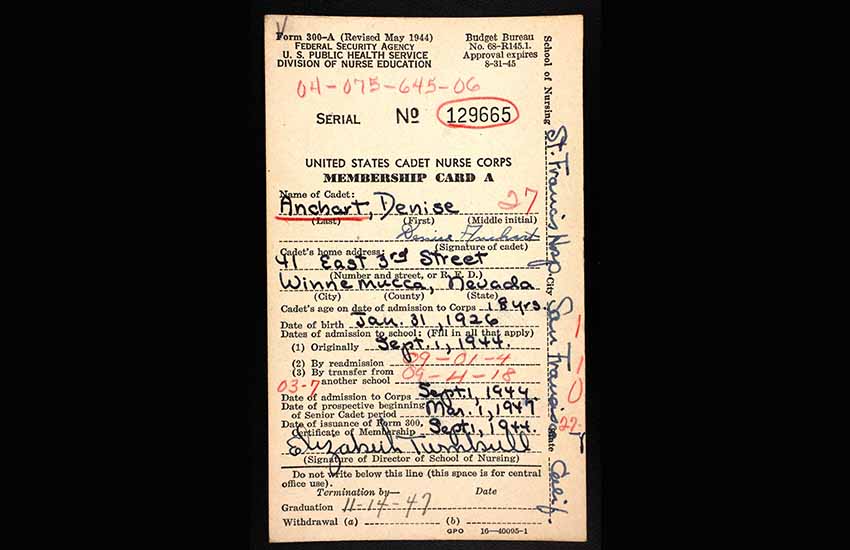 Form 300-A (Revised May 1944)
FEDERAL SECURITY AGENCY
U. S. PUBLIC HEALTH SERVICE
DIVISION OF NURSE EDUCATION
Budget Bureau
No. 68-R145.1.
Approval expires
8-31-45
04-075-645-06
SERIAL No 129665
UNITED STATES CADET NURSE CORPS
MEMBERSHIP CARD A
Name of Cadet: 27
Anchart, Denise
(Last) (First) (Middle initial)
Denise Anchart
Cadet's home address: (Signature of cadet)
41 East 3rd Street
(Number and street, or R. F. D.)
Winnemucca, Nevada
(City) (County) (State)
Cadet's age on date of admission to Corps 18 yrs.
Date of birth Jan. 31, 1926
Dates of admission to school: (Fill in all that apply)
(1) Originally Sept. 1, 1944.
(2) By readmission 09-01-4
(3) By transfer from 09-4-18
03-7 another school
Date of admission to Corps Sept. 1, 1944.
Date of prospective beginning
of Senior Cadet period Mar. 1, 1947
Date of issuance of Form 300,
Certificate of Membership Sept. 1, 1944.
Elizabeth Turnbull
(Signature of Director of School of Nursing)
Do not write below this line (this space is for central
office use).
Termination by— Date
Graduation 11-14-47
Withdrawal (a) (b)
GPO 16-40095-1
School of Nursing St. Francis Hosp. City San Francisco State Calif.
1
1
0
22-